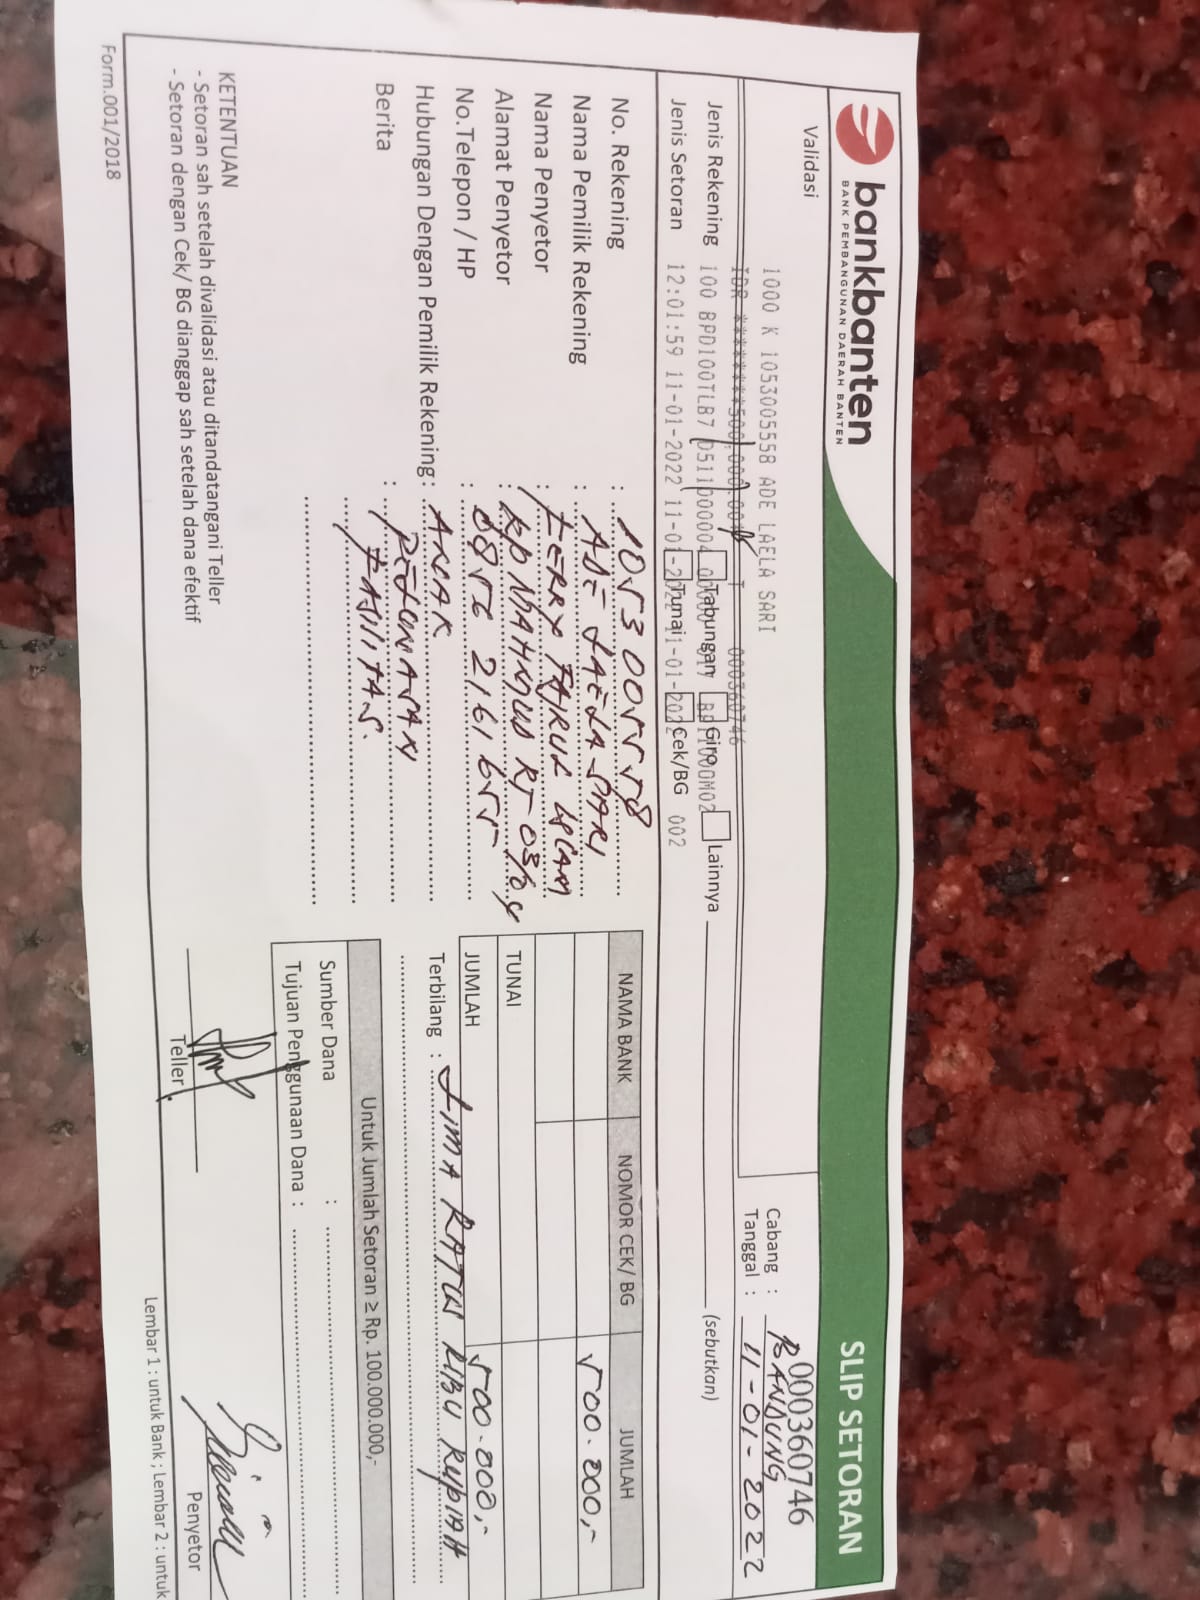 bankbanten
BANK PEMBANGUNAN DAERAH BANTEN
SLIP SETORAN
0000360746
Validasi
1000 K 1053005558 ADE LAELA SARI
IDR ********500,000.00 T 000360746
Cabang : BANDUNG
Tanggal : 11-01-2022
Jenis Rekening 100 BPD100TLB7 Tabungan Giro Lainnya (sebutkan)
Jenis Setoran 12:01:59 11-01-2022 Tunai Cek/BG 002
No. Rekening : 1053005558
Nama Pemilik Rekening : ADE LAELA SARI
Nama Penyetor : FERRY
Alamat Penyetor : KP MAHMUD RT 03/04
No.Telepon / HP : 0856 2161 655
Hubungan Dengan Pemilik Rekening : ANAK
Berita : PELUNASAN
FASILITAS
NAMA BANK NOMOR CEK/ BG JUMLAH
500.000,-
TUNAI
JUMLAH 500.000,-
Terbilang : LIMA RATUS RIBU RUPIAH
Untuk Jumlah Setoran ≥ Rp. 100.000.000,-
Sumber Dana :
Tujuan Penggunaan Dana :
KETENTUAN
- Setoran sah setelah divalidasi atau ditandatangani Teller
- Setoran dengan Cek/ BG dianggap sah setelah dana efektif
Teller
Penyetor
Form.001/2018
Lembar 1 : untuk Bank ; Lembar 2 : untuk